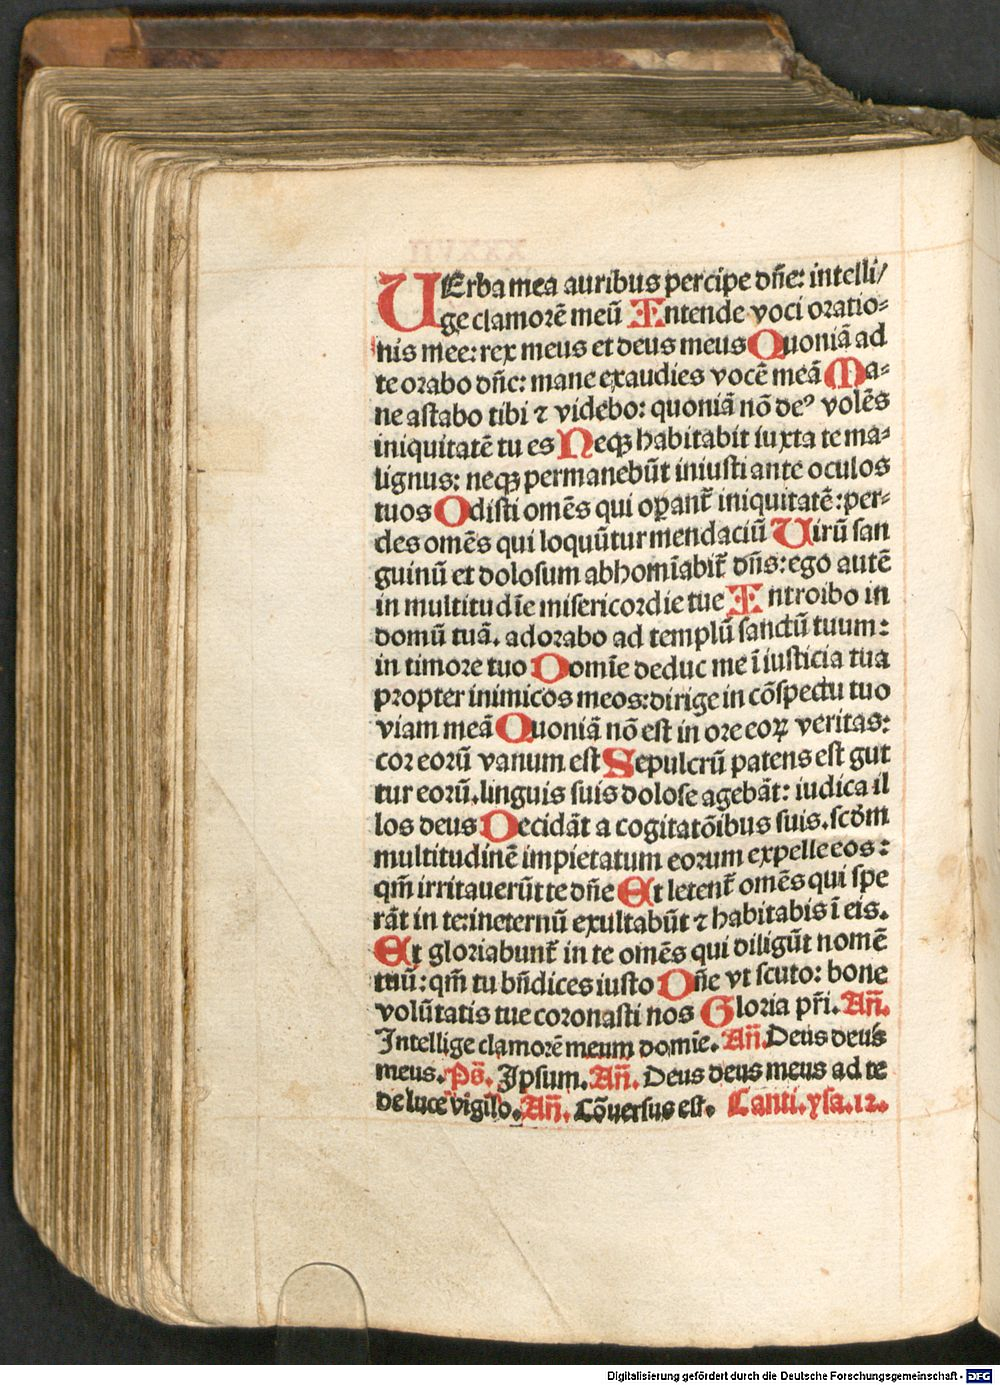 UErba mea auribus percipe dñe: intelli/
ge clamorē meū Intende voci oratio-
nis mee: rex meus et deus meus Quoniā ad
te orabo dñe: mane exaudies vocē meā Ma-
ne astabo tibi ⁊ videbo: quoniā nō deꝰ volēs
iniquitatē tu es Neqꝫ habitabit iuxta te ma-
lignus: neqꝫ permanebūt iniusti ante oculos
tuos Odisti omēs qui oꝑant̄ iniquitatē: per-
des omēs qui loquūtur mendaciū Uirū san
guinū et dolosum abhomīabit̄ dñs: ego autē
in multitudīe misericordie tue Introibo in
domū tuā. adorabo ad templū sanctū tuum:
in timore tuo Domīe deduc me ī iusticia tua
propter inimicos meos: dirige in cōspectu tuo
viam meā Quoniā nō est in ore eoꝝ veritas:
cor eorū vanum est Sepulcrū patens est gut
tur eorū. linguis suis dolose agebāt: iudica il
los deus Decidāt a cogitatōibus suis. scdm
multitudinē impietatum eorum expelle eos:
qm̄ irritauerūt te dñe Et letent̄ omēs qui spe
rāt in te: ineternū exultabūt ⁊ habitabis ī eis.
Et gloriabunt̄ in te omēs qui diligūt nomē
tuū: qm̄ tu bñdices iusto Dñe vt scuto: bone
volūtatis tue coronasti nos Gloria pr̄i. Añ.
Intellige clamorē meum domīe. Añ. Deus deus
meus. Ps̄. Ipsum. Añ. Deus deus meus ad te
de luce vigilo. Añ. Cōuersus est. Canti. ysa. 12.
Digitalisierung gefördert durch die Deutsche Forschungsgemeinschaft - DFG